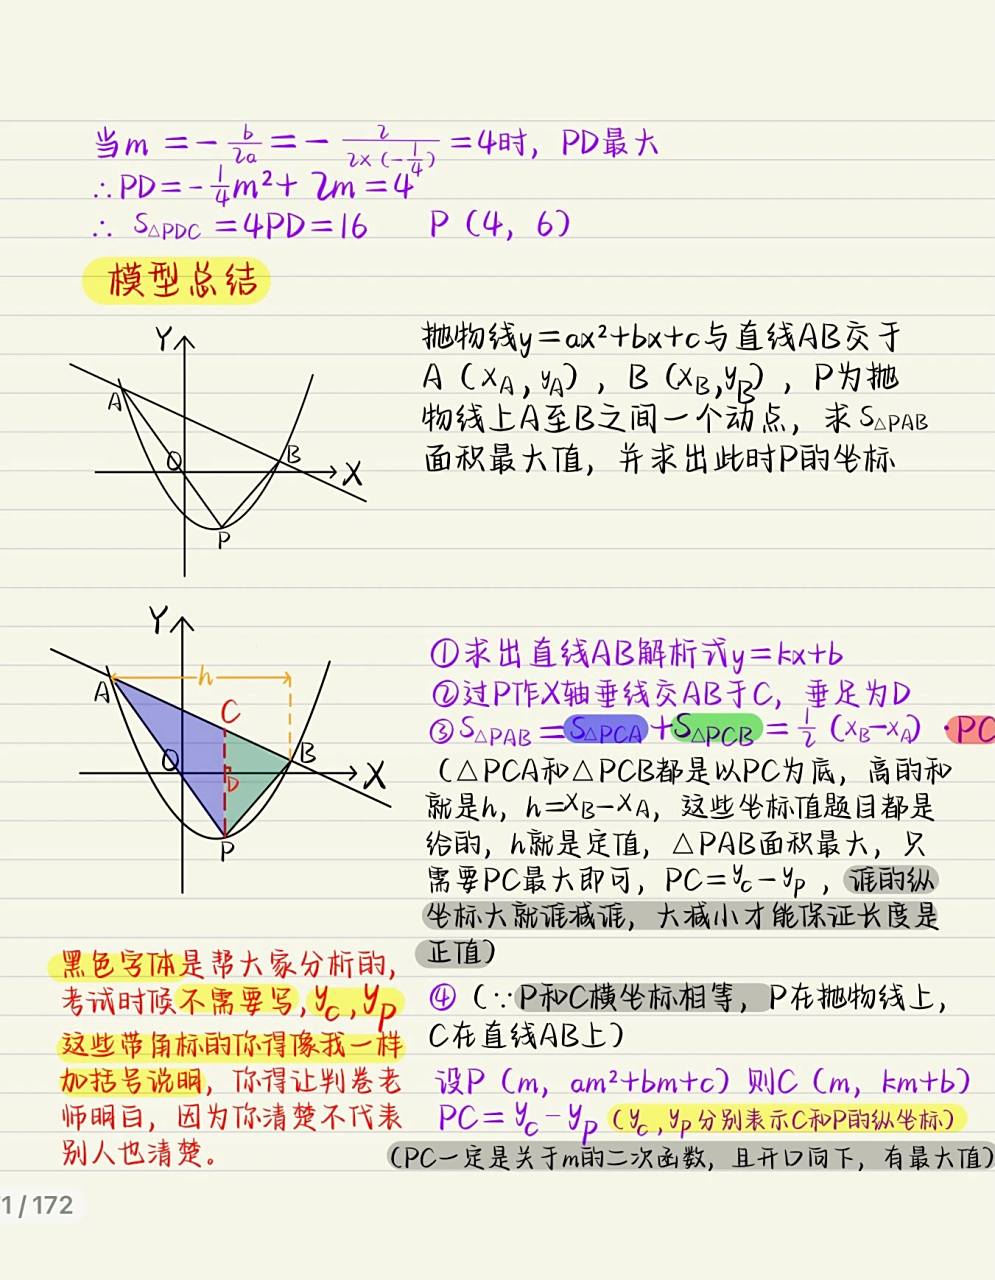 当m=-b/2a=-2/(2×(-1/4))=4时，PD最大
∴PD=-1/4m²+2m=4
∴ S△PDC=4PD=16 P（4，6）
模型总结
Y
A
O
B
X
P
抛物线y=ax²+bx+c与直线AB交于
A（xA,yA），B（xB,yB），P为抛
物线上A至B之间一个动点，求S△PAB
面积最大值，并求出此时P的坐标
Y
h
A
C
O
D
B
X
P
①求出直线AB解析式y=kx+b
②过P作X轴垂线交AB于C，垂足为D
③S△PAB=S△PCA+S△PCB=1/2（xB-xA）·PC
（△PCA和△PCB都是以PC为底，高的和
就是h，h=xB-xA，这些坐标值题目都是
给的，h就是定值，△PAB面积最大，只
需要PC最大即可，PC=yc-yp，谁的纵
坐标大就谁减谁，大减小才能保证长度是
正值）
④（∵P和C横坐标相等，P在抛物线上，
C在直线AB上）
设P（m，am²+bm+c）则C（m，km+b）
PC=yc-yp（yc,yp分别表示C和P的纵坐标）
（PC一定是关于m的二次函数，且开口向下，有最大值）
黑色字体是帮大家分析的，
考试时候不需要写,yc,yp
这些带角标的你得像我一样
加括号说明，你得让判卷老
师明白，因为你清楚不代表
别人也清楚。
1/172